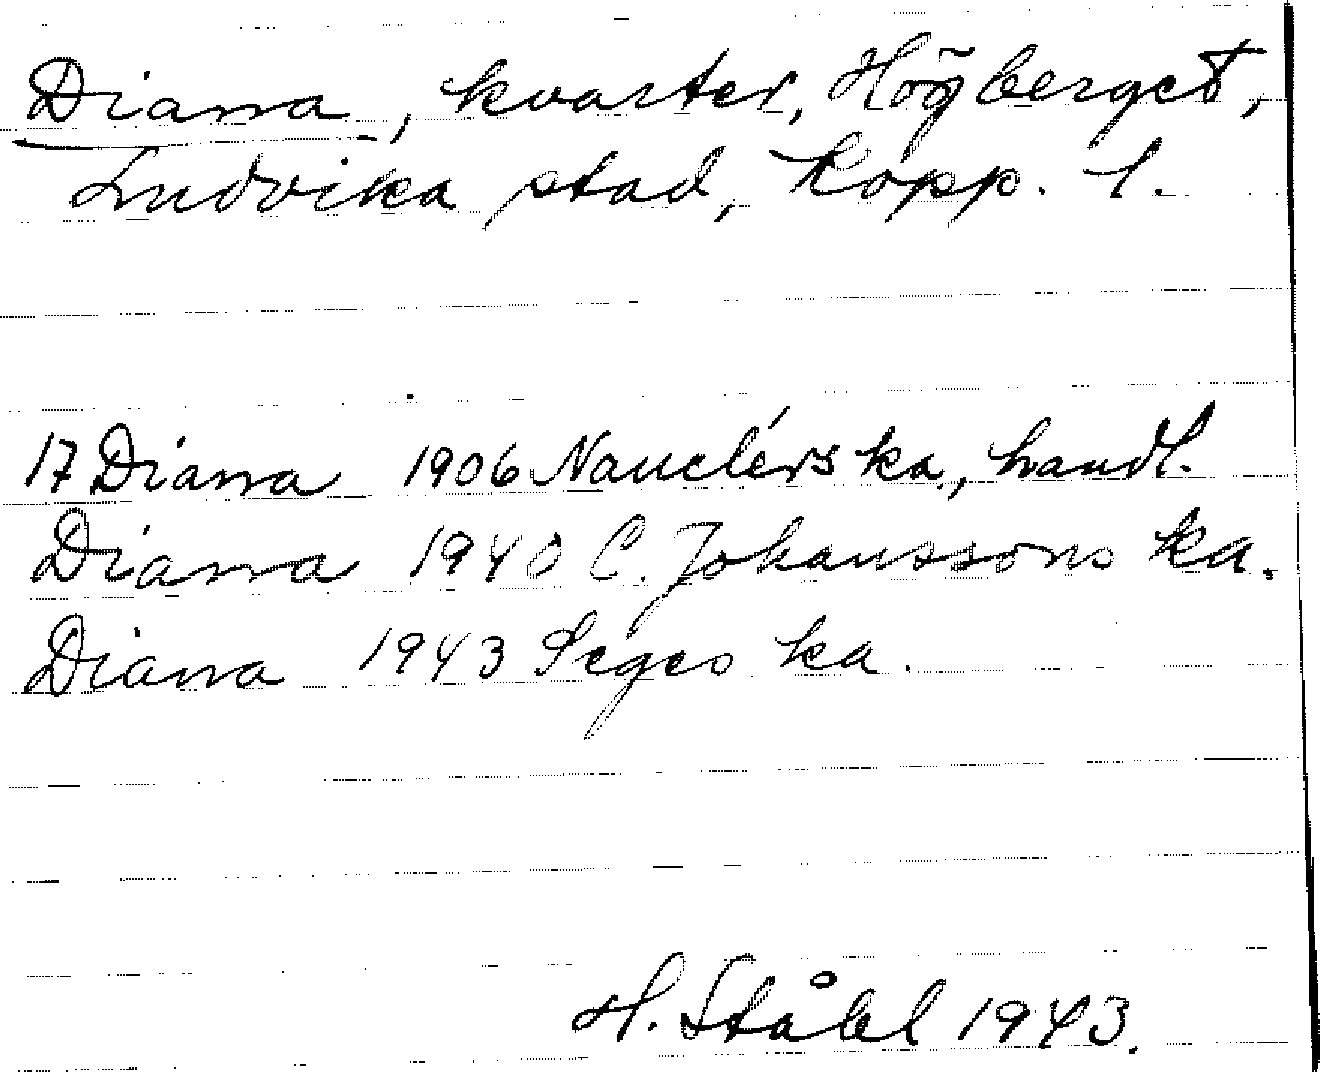 Diana, kvarter, Högberget,
Ludvika stad, Kopp. l.
17 Diana 1906 Nauclérs ka, handl.
Diana 1940 C. Johanssons ka.
Diana 1943 Seges ka.
H. Ståhl 1943.